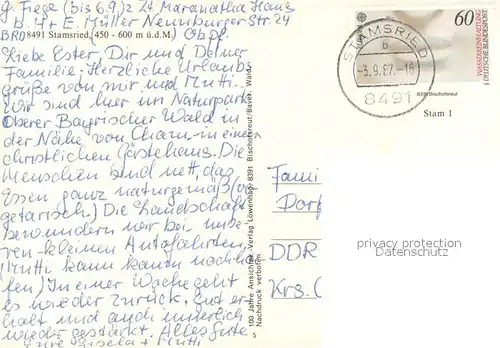 G. Fiege (bis 6.9.) z Zt Maranatha Haus
b. 4+ E. Müller Neunburger Str. 24
BRD 8491 Stamsried, (450 - 600 m ü.d.M.) Obpf.
Liebe Ester, Dir und Deiner
Familie Herzliche Urlaubs
grüße von mir und Mutti.
Wir sind hier im Naturpark
Oberer Bayrischer Wald in
der Nähe von Cham in einem
christlichen Gästehaus. Die
Menschen sind nett, das
Essen ganz naturgemäß (ve
getarisch) Die Landschaft
bewundern wir bei unse
ren kleinen Autofahrten,
(Mutti kann kaum noch lau
fen) In einer Woche geht
es wieder zurück. Gut er
holt und auch innerlich
wieder gestärkt. Alles Gute,
Eure Gisela + Mutti
100 Jahre Ansichtskarten Verlag Löwenhag 8391 Bischofsreut/Bayer. Wald
Nachdruck verboten
STAMSRIED
b
-3.9.87.-16
8491
60
WASSERREINHALTUNG
DEUTSCHE BUNDESPOST
8391 Bischofsreut
Stam 1
Fami
Dorf
DDR
Krs. (
privacy protection
Datenschutz